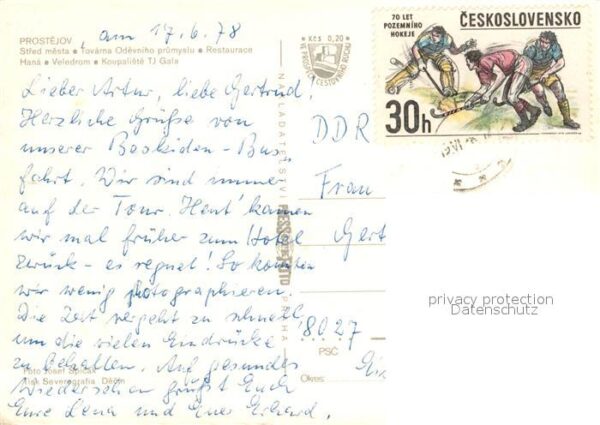 am 17.6.78
PROSTĚJOV
Střed města • Továrna Oděvního průmyslu • Restaurace
Haná • Velodrom • Koupaliště TJ Gala
Lieber Artur, liebe Gertrud,
Herzliche Grüße von
unserer Beskiden-Bus-
fahrt. Wir sind immer
auf der Tour. Heut' kamen
wir mal früher zum Hotel
zurück - es regnet! So konnten
wir wenig photographieren.
Die Zeit vergeht zu schnell
um die vielen Eindrücke
zu behalten. Auf gesundes
Wiedersehen grüßt Euch
Eure Lena und Euer Erhard.
Foto Josef
Tisk Severografia Děčín
NAKLADATELSTVÍ PRESSFOTO PRAHA
Kčs 0,20
VE PROSPĚCH CESTOVNÍHO RUCHU
70 LET
POZEMNÍHO
HOKEJE
ČESKOSLOVENSKO
30h
DDR
Frau
Gert
8027
PSČ
Okres:
privacy protection
Datenschutz